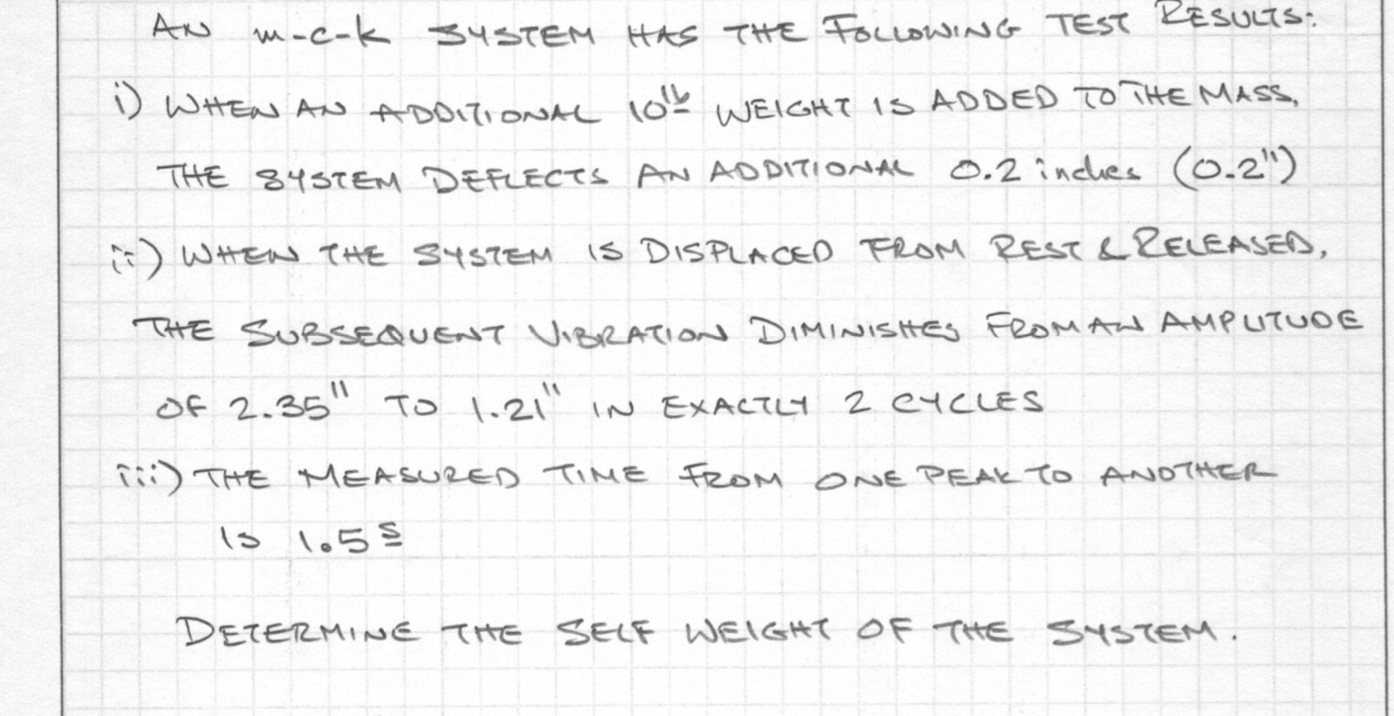 AN m-c-k SYSTEM HAS THE FOLLOWING TEST RESULTS:
i) WHEN AN ADDITIONAL 10lb WEIGHT IS ADDED TO THE MASS,
THE SYSTEM DEFLECTS AN ADDITIONAL 0.2 inches (0.2")
ii) WHEN THE SYSTEM IS DISPLACED FROM REST & RELEASED,
THE SUBSEQUENT VIBRATION DIMINISHES FROM AN AMPLITUDE
OF 2.35" TO 1.21" IN EXACTLY 2 CYCLES
iii) THE MEASURED TIME FROM ONE PEAK TO ANOTHER
IS 1.5s
DETERMINE THE SELF WEIGHT OF THE SYSTEM.